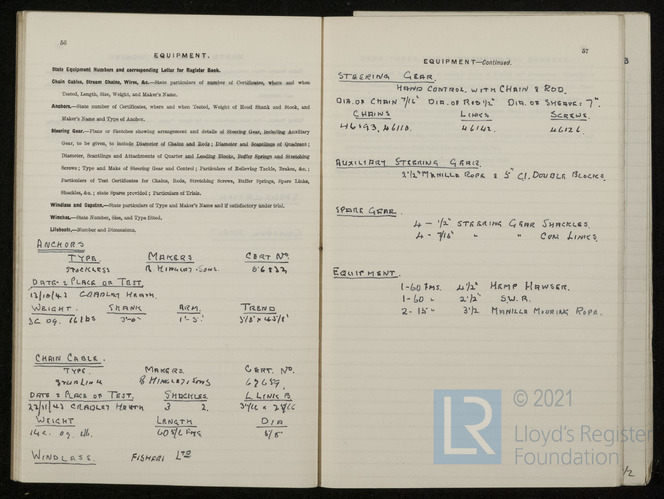 56
EQUIPMENT.
State Equipment Numbers and corresponding Letter for Register Book.
Chain Cables, Stream Chains, Wires, &c.—State particulars of number of Certificates, where and when
Tested, Length, Size, Weight, and Maker's Name.
Anchors.—State number of Certificates, where and when Tested, Weight of Head Shank and Stock, and
Maker's Name and Type of Anchor.
Steering Gear.—Plans or Sketches showing arrangement and details of Steering Gear, including Auxiliary
Gear, to be given, to include Diameter of Chains and Rods; Diameter and Scantlings of Quadrant;
Diameter, Scantlings and Attachments of Quarter and Leading Blocks, Buffer Springs and Stretching
Screws; Type and Make of Steering Gear and Control; Particulars of Relieving Tackle, Brakes, &c.;
Particulars of Test Certificates for Chains, Rods, Stretching Screws, Buffer Springs, Spare Links,
Shackles, &c.; state Spares provided; Particulars of Trials.
Windlass and Capstan.—State particulars of Type and Maker's Name and if satisfactory under trial.
Winches.—State Number, Size, and Type fitted.
Lifeboats.—Number and Dimensions.
ANCHORS
TYPE. MAKERS CERT No.
STOCKLESS HINGLEY & SONS.
DATE & PLACE OF TEST.
13/10/42 CRADLEY HEATH.
WEIGHT. SHANK ARM. TREND
CHAIN CABLE.
TYPE. MAKERS. CERT. No.
STUD LINK HINGLEY & SONS
DATE & PLACE OF TEST. SHACKLES. L LINK B
CRADLEY HEATH 3 2.
WEIGHT LENGTH DIA
WINDLASS. LTD
57
EQUIPMENT—Continued.
STEERING GEAR.
HAND CONTROL WITH CHAIN & ROD.
DIA. OF CHAIN 7/16" DIA. OF ROD 1/2" DIA. OF SHEAVE: 7".
CHAINS LINKS SCREWS.
46193, 46110. 46142. 46126.
AUXILIARY STEERING GEAR.
2 1/2" MANILLA ROPE & 5" C.I. DOUBLE BLOCKS.
SPARE GEAR.
4 — 1/2" STEERING GEAR SHACKLES.
4 — 7/16" " " CON. LINKS.
EQUIPMENT.
1-60 FMS. 4 1/2" HEMP HAWSER.
1-60 " 2 1/2" S.W.R.
2-15 " 3 1/2 MANILLA MOORING ROPE.
LR
© 2021
Lloyd's Register
Foundation